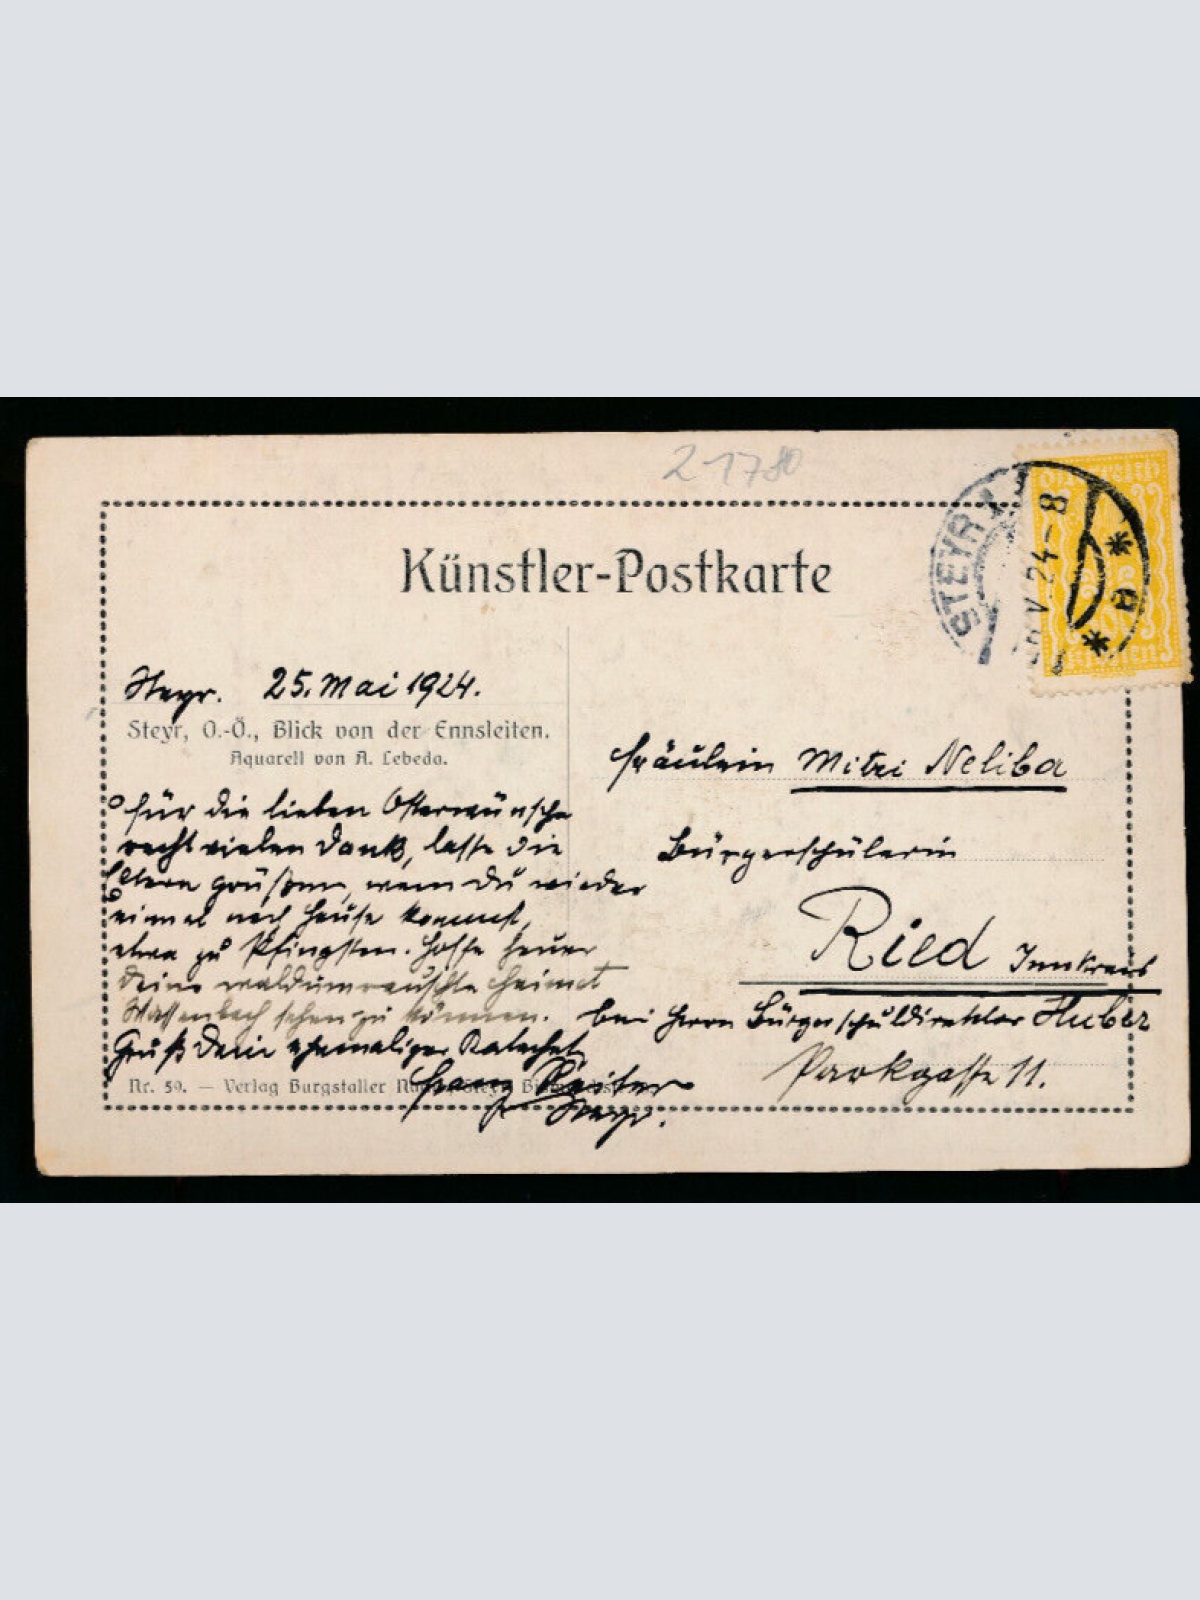 21780
Künstler-Postkarte
STEYR
V 24-8
Österreich
Kronen
Steyr. 25. Mai 1924.
Steyr, O.-Ö., Blick von der Ennsleiten.
Aquarell von A. Lebeda.
Für die lieben Osterwünsche
recht vielen Dank, lasse die
Eltern grüßen, wenn Du wieder
einmal nach Hause kommst,
etwa zu Pfingsten. Hoffe heuer
Deine waldumrauschte Heimat
Wassenbach sehen zu können.
Gruß Dein ehemaliger Katechet
Franz
Steyr.
Nr. 50. — Verlag Burgstaller
Fräulein Mitzi Neliba
Bürgerschülerin
Ried Innkreis
bei Herrn Bürgerschuldirektor Huber
Parkgasse 11.